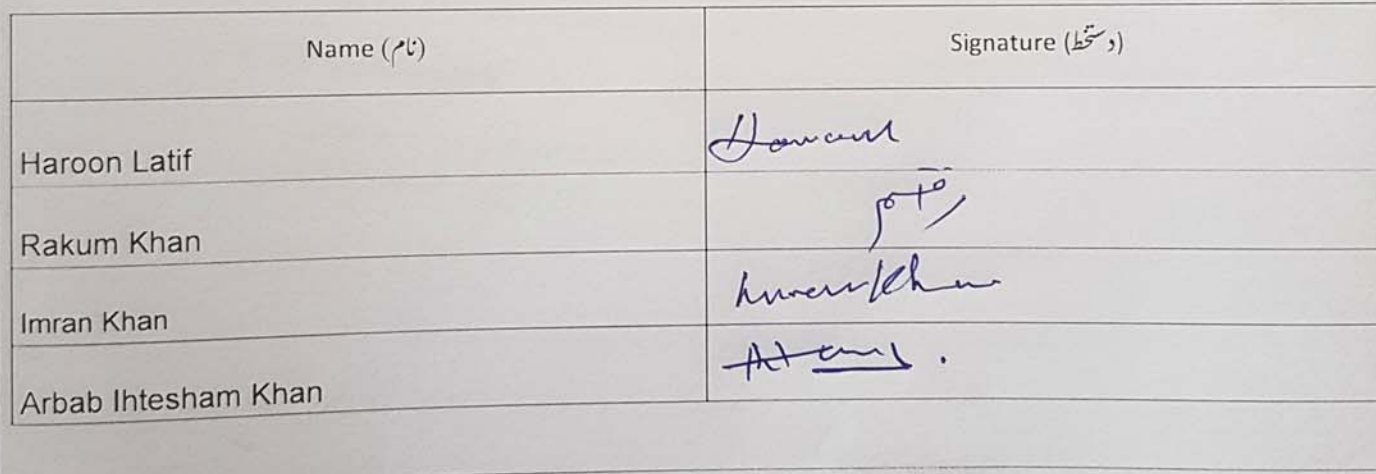 Name (نام)
Signature (دستخط)
Haroon Latif
Rakum Khan
رقم
Imran Khan
Imran Khan
Arbab Ihtesham Khan